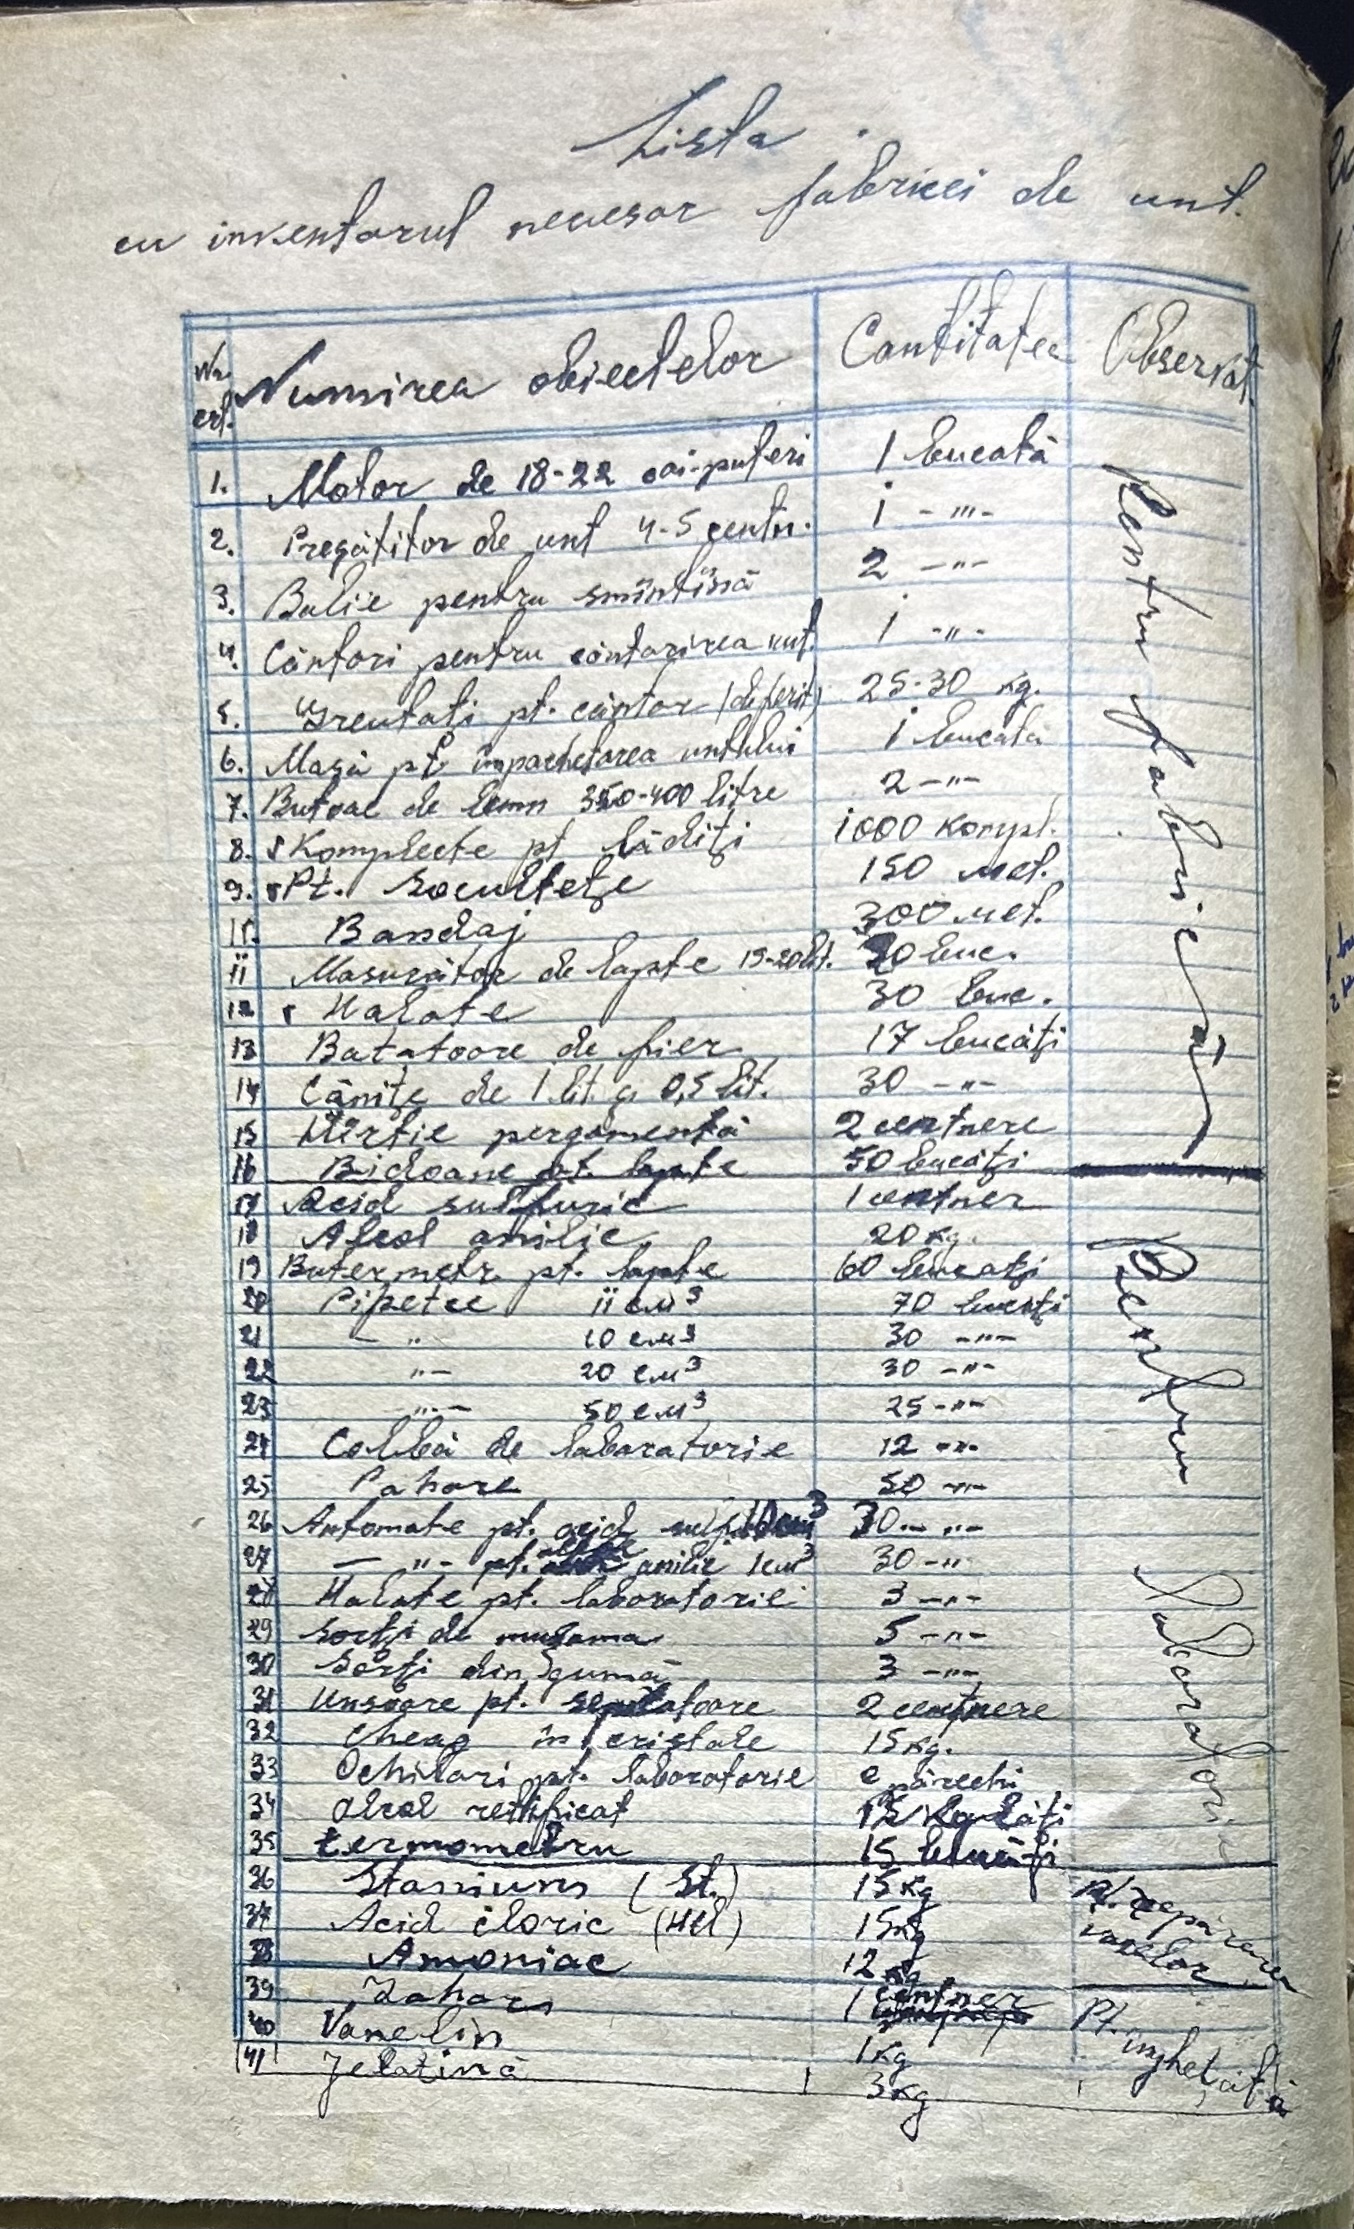 Lista
cu inventarul necesar fabricei de unt.
Nr. crt. Numirea obiectelor Cantitatea Observat.
1. Motor de 18-22 cai-puteri 1 bucată
2. Pregătitor de unt 4-5 centn. 1 -"-
3. Balie pentru smîntînă 2 -"-
4. Cântari pentru cântarirea unt. 1 -"-
5. Greutati pt. cântar (diferit) 25-30 kg.
6. Masă pt împachetarea untului 1 bucată
7. Butoae de lemn 350-400 litre 2 -"-
8. Komplecte pt lădiţi 1000 kompl.
9. Pt. Seculteţe 150 met.
10. Bandaj 300 met.
11 Masurător de lapte 19-20 lit. 20 buc.
12 Halate 30 buc.
13 Batatoare de fier 17 bucăţi
14 Căniţe de 1 lit. şi 0,5 lit. 30 -"-
15 Hîrtie pergamentă 2 centnere
16 Bidoane pt. lapte 50 bucăţi
Pentru fabrică
17 Acid sulfuric 1 centner
18 Alcol amilic 20 kg.
19 Butermetr pt. lapte 60 bucaţi
20 Pipetce 11 cm³ 70 bucăţi
21 -"- 10 cm³ 30 -"-
22 -"- 20 cm³ 30 -"-
23 -"- 50 cm³ 25 -"-
24 Colbă de labaratorie 12 -"-
25 Pahare 50 -"-
26 Automate pt. acid sulf. 10 cm³ 30 -"-
27 -"- pt. amilic 1 cm³ 30 -"-
28 Halate pt. laboratorie 3 -"-
29 Sorţi de muşama 5 -"-
30 Sorţi din gumă 3 -"-
31 Unsoare pt. 2 centnere
32 Cheag în cristale 15 kg.
33 Ochilari pt. laboratorie părechi
34 Alcol retificat
35 termometru 15 bucăţi
Pentru Laboratorie
36 Stanium (St.) 15 kg
37 Acid cloric (HCl) 15 kg
38 Amoniac 12 kg
pt. repararea
vaselor
39 Zahar 1 centner
40 Vanelin 1 kg
41 Jelatină 3 kg
Pt. îngheţată